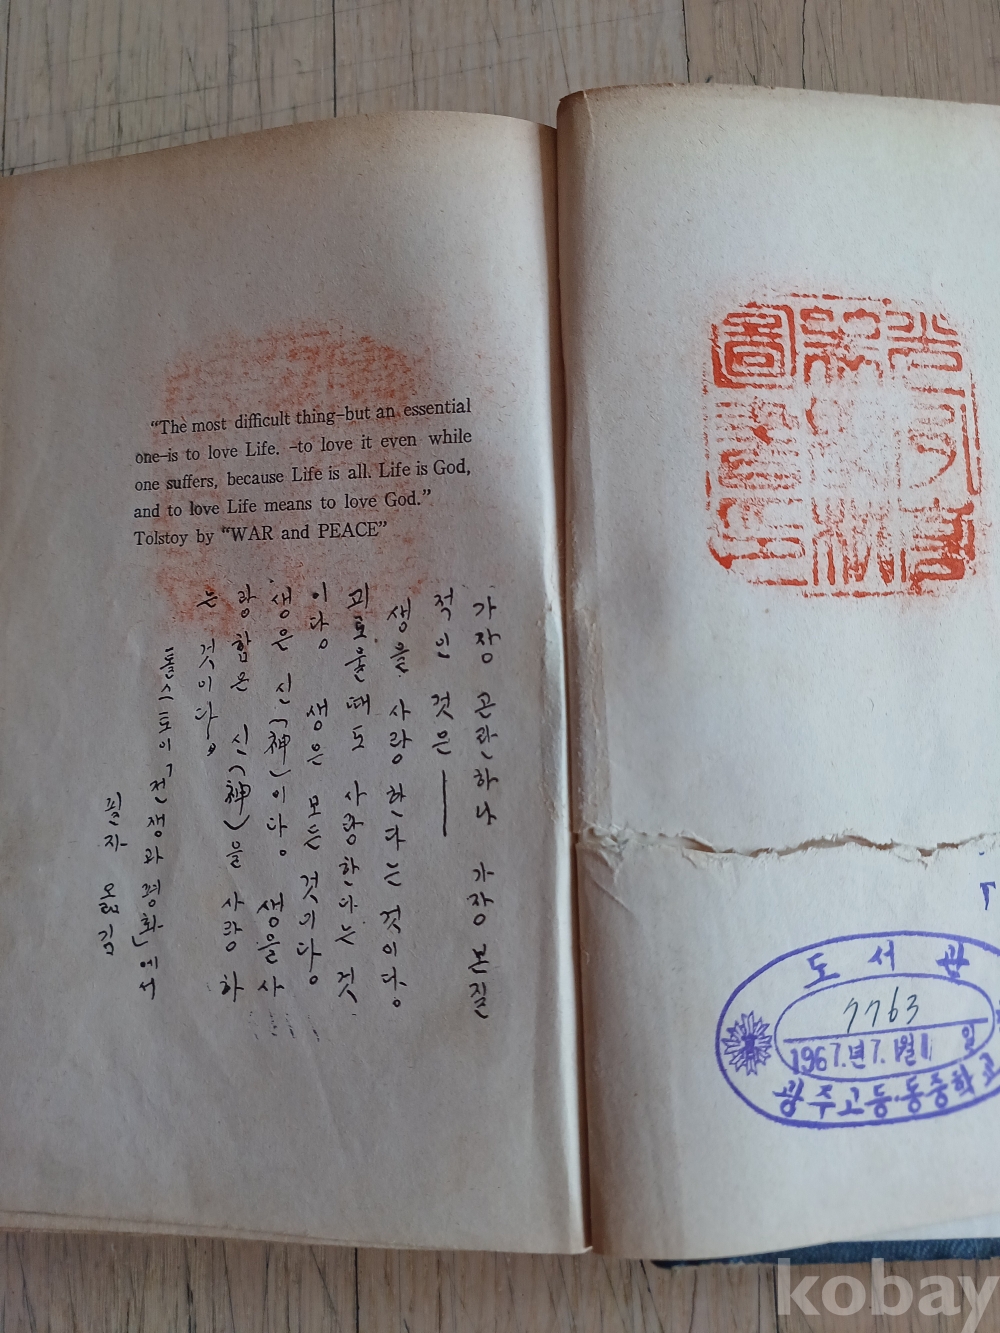 “The most difficult thing–but an essential
one–is to love Life. –to love it even while
one suffers, because Life is all. Life is God,
and to love Life means to love God.”
Tolstoy by “WAR and PEACE”
가장 곤란하나 가장 본질
적인 것은——
생을 사랑한다는 것이다.
괴로울때도 사랑한다는 것
이다. 생은 모든 것이다.
생은 신(神)이다. 생을 사
랑함은 신(神)을 사랑하
는 것이다.”
톨스토이 「전쟁과 평화」에서
필자 옮김
도서관
7763
1967.년 7.월 1 일
광주고등·동중학교
kobay